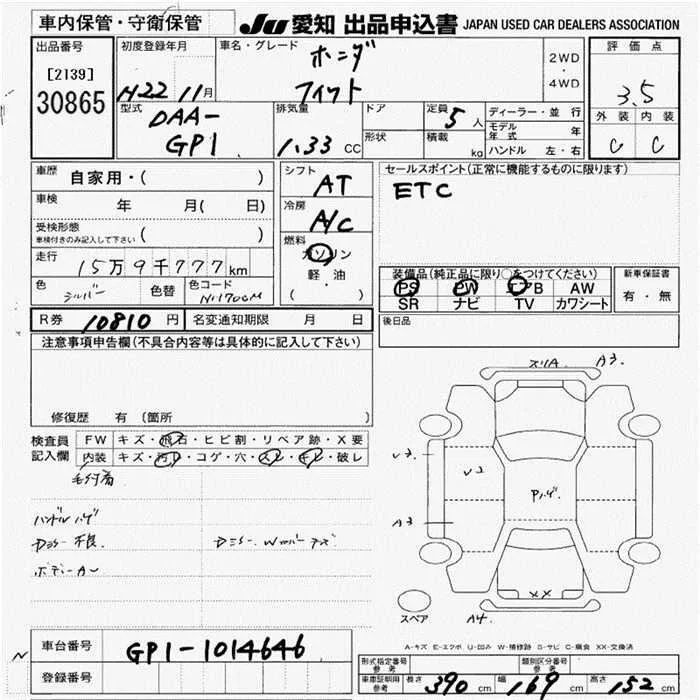 車内保管・守衛保管
JU 愛知 出品申込書 JAPAN USED CAR DEALERS ASSOCIATION
出品番号
[2139]
30865
初度登録年月
H22 11月
車名・グレード
ホンダ
フィット
2WD
・
4WD
評価点
3.5
外装 内装
C C
型式
DAA-
GP1
排気量
1.33 CC
ドア
形状
定員 5 人
積載 kg
ディーラー・並行
モデル年式 年
ハンドル 左・右
車歴 自家用・( )
車検 年 月( 日)
受検形態
車検付きのみ記入して下さい ( )
走行 15万9千777km
色 シルバー 色替 色コード
シフト AT
冷房 A/C
燃料
ガソリン
軽・油
( )
セールスポイント(正常に機能するものに限ります)
ETC
装備品(純正品に限り○をつけてください)
PS PW エアB AW
SR ナビ TV カワシート
新車保証書
有・無
R券 10810 円 名変通知期限 月 日
後日品
注意事項申告欄(不具合内容等は具体的に記入して下さい)
修復歴 有 〔箇所
検査員記入欄
FW キズ・飛石・ヒビ割・リペア跡・X要
内装 キズ・汚レ・コゲ・穴・スレ・キレ・破レ
ハンドルハゲ
Dミラー不良
ボディーA~
スリA A3.
U2
U2
A3
Pハゲ
XX
A4.
スペア
A-キズ E-エクボ U-凹み W-補修跡 S-サビ C-腐食 XX-交換済
車台番号 GP1-1014646
登録番号
型式指定番号 参考
類別区分番号 参考
車庫証明用 参考 長さ 390 cm 幅 169 cm 高さ 152 cm